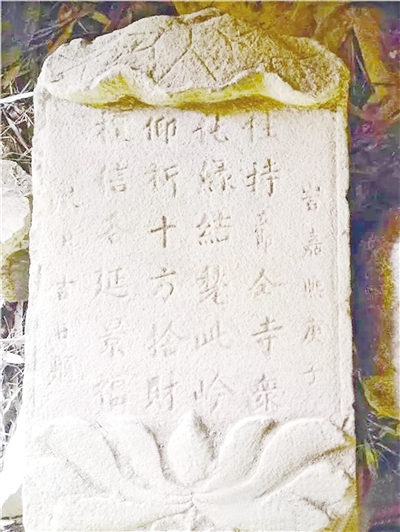 旹嘉熙庚子
住持全寺衆
化緣結甃此岭
仰祈十方捨財
檀信各延景福
月吉日題